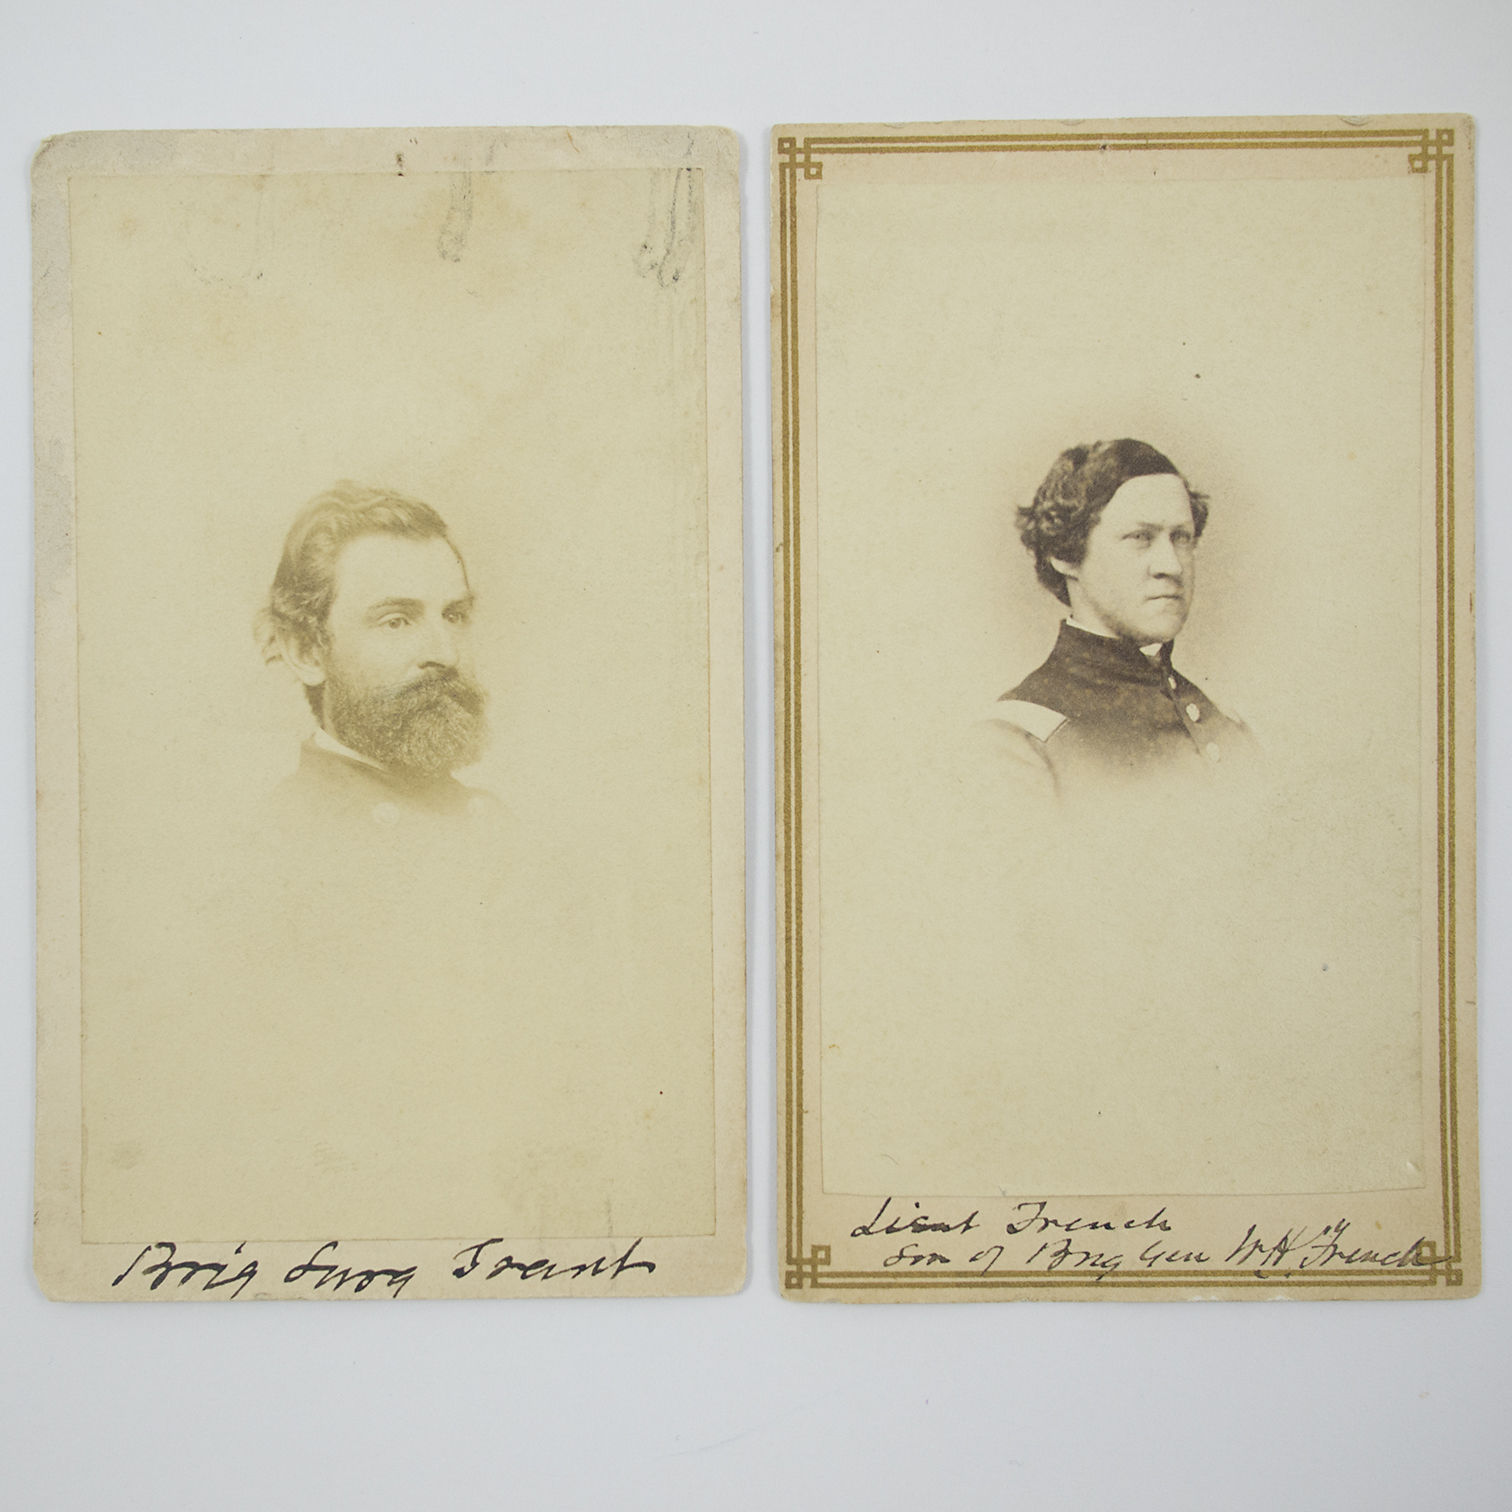 Brig Surg Grant
Lieut French
Son of Brig Gen W. H. French